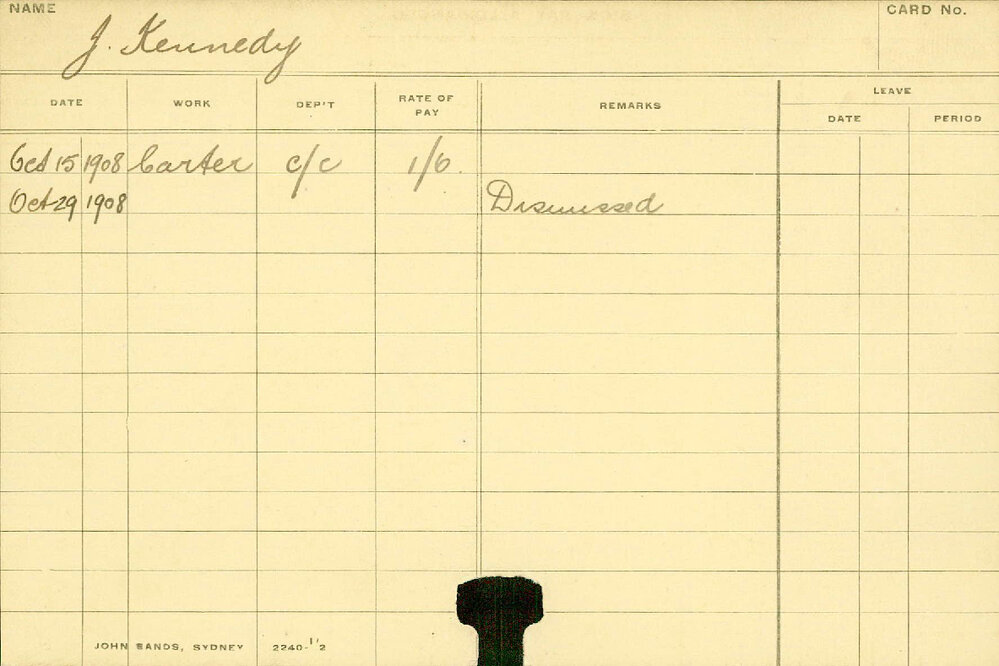 NAME
CARD No.
J. Kennedy
DATE WORK DEP'T RATE OF PAY REMARKS LEAVE
DATE PERIOD
Oct 15 1908 Carter c/c 1/6
Oct 29 1908 Dismissed
JOHN SANDS, SYDNEY 2240-1'2